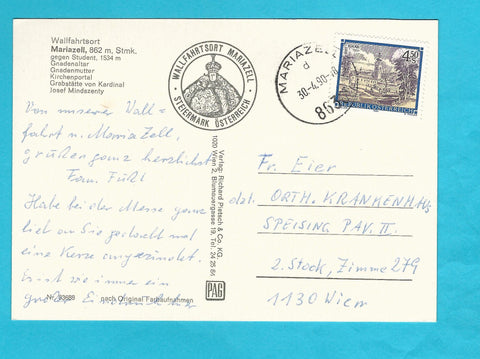 Wallfahrtsort
Mariazell, 862 m, Stmk.
gegen Student, 1534 m
Gnadenaltar
Gnadenmutter
Kirchenportal
Grabstätte von Kardinal
Josef Mindszenty
WALLFAHRTSORT MARIAZELL
STEIERMARK ÖSTERREICH
MARIAZELL
d
30-4.90
4.50
REPUBLIK ÖSTERREICH
Von unserer Wall-
fahrt n. Maria Zell,
grüßen ganz herzlichst
Fam. Füßl
Habe bei der Messe ganz
lieb an Sie gedacht und
eine Kerze angezündet.
Es ist wie immer ein
großer
Nr. 93689 nach Original Farbaufnahmen
Verlag: Richard Pietsch & Co. KG.
1020 Wien 2, Blumauergasse 19, Tel. 24 25 64
PAG
Fr. Eier
dzt. ORTH. KRANKENHAUS
SPEISING PAV. II.
2. Stock, Zimmer 279
1130 Wien